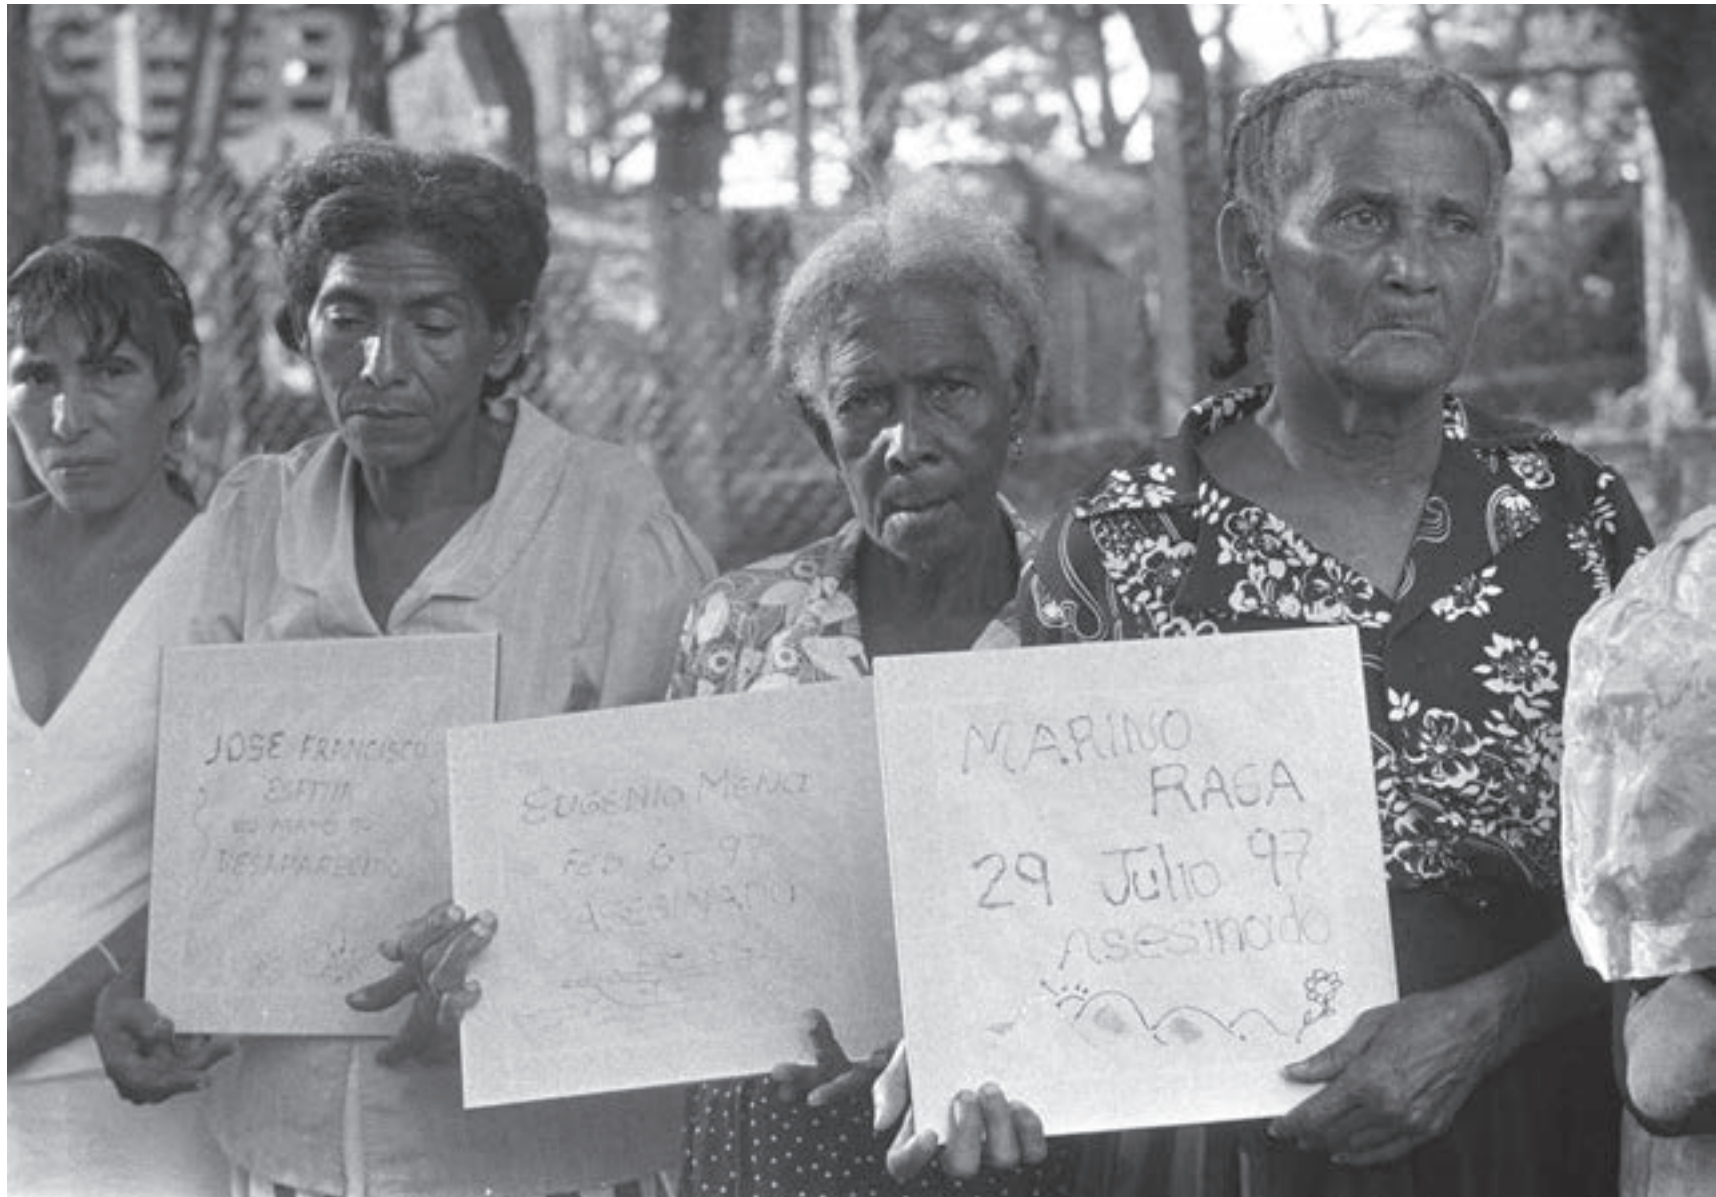 JOSE FRANCISCO
DESAPARECIDO
EUGENIO MENA
FEB 97
ASESINADO
MARINO
RAGA
29 Julio 97
Asesinado